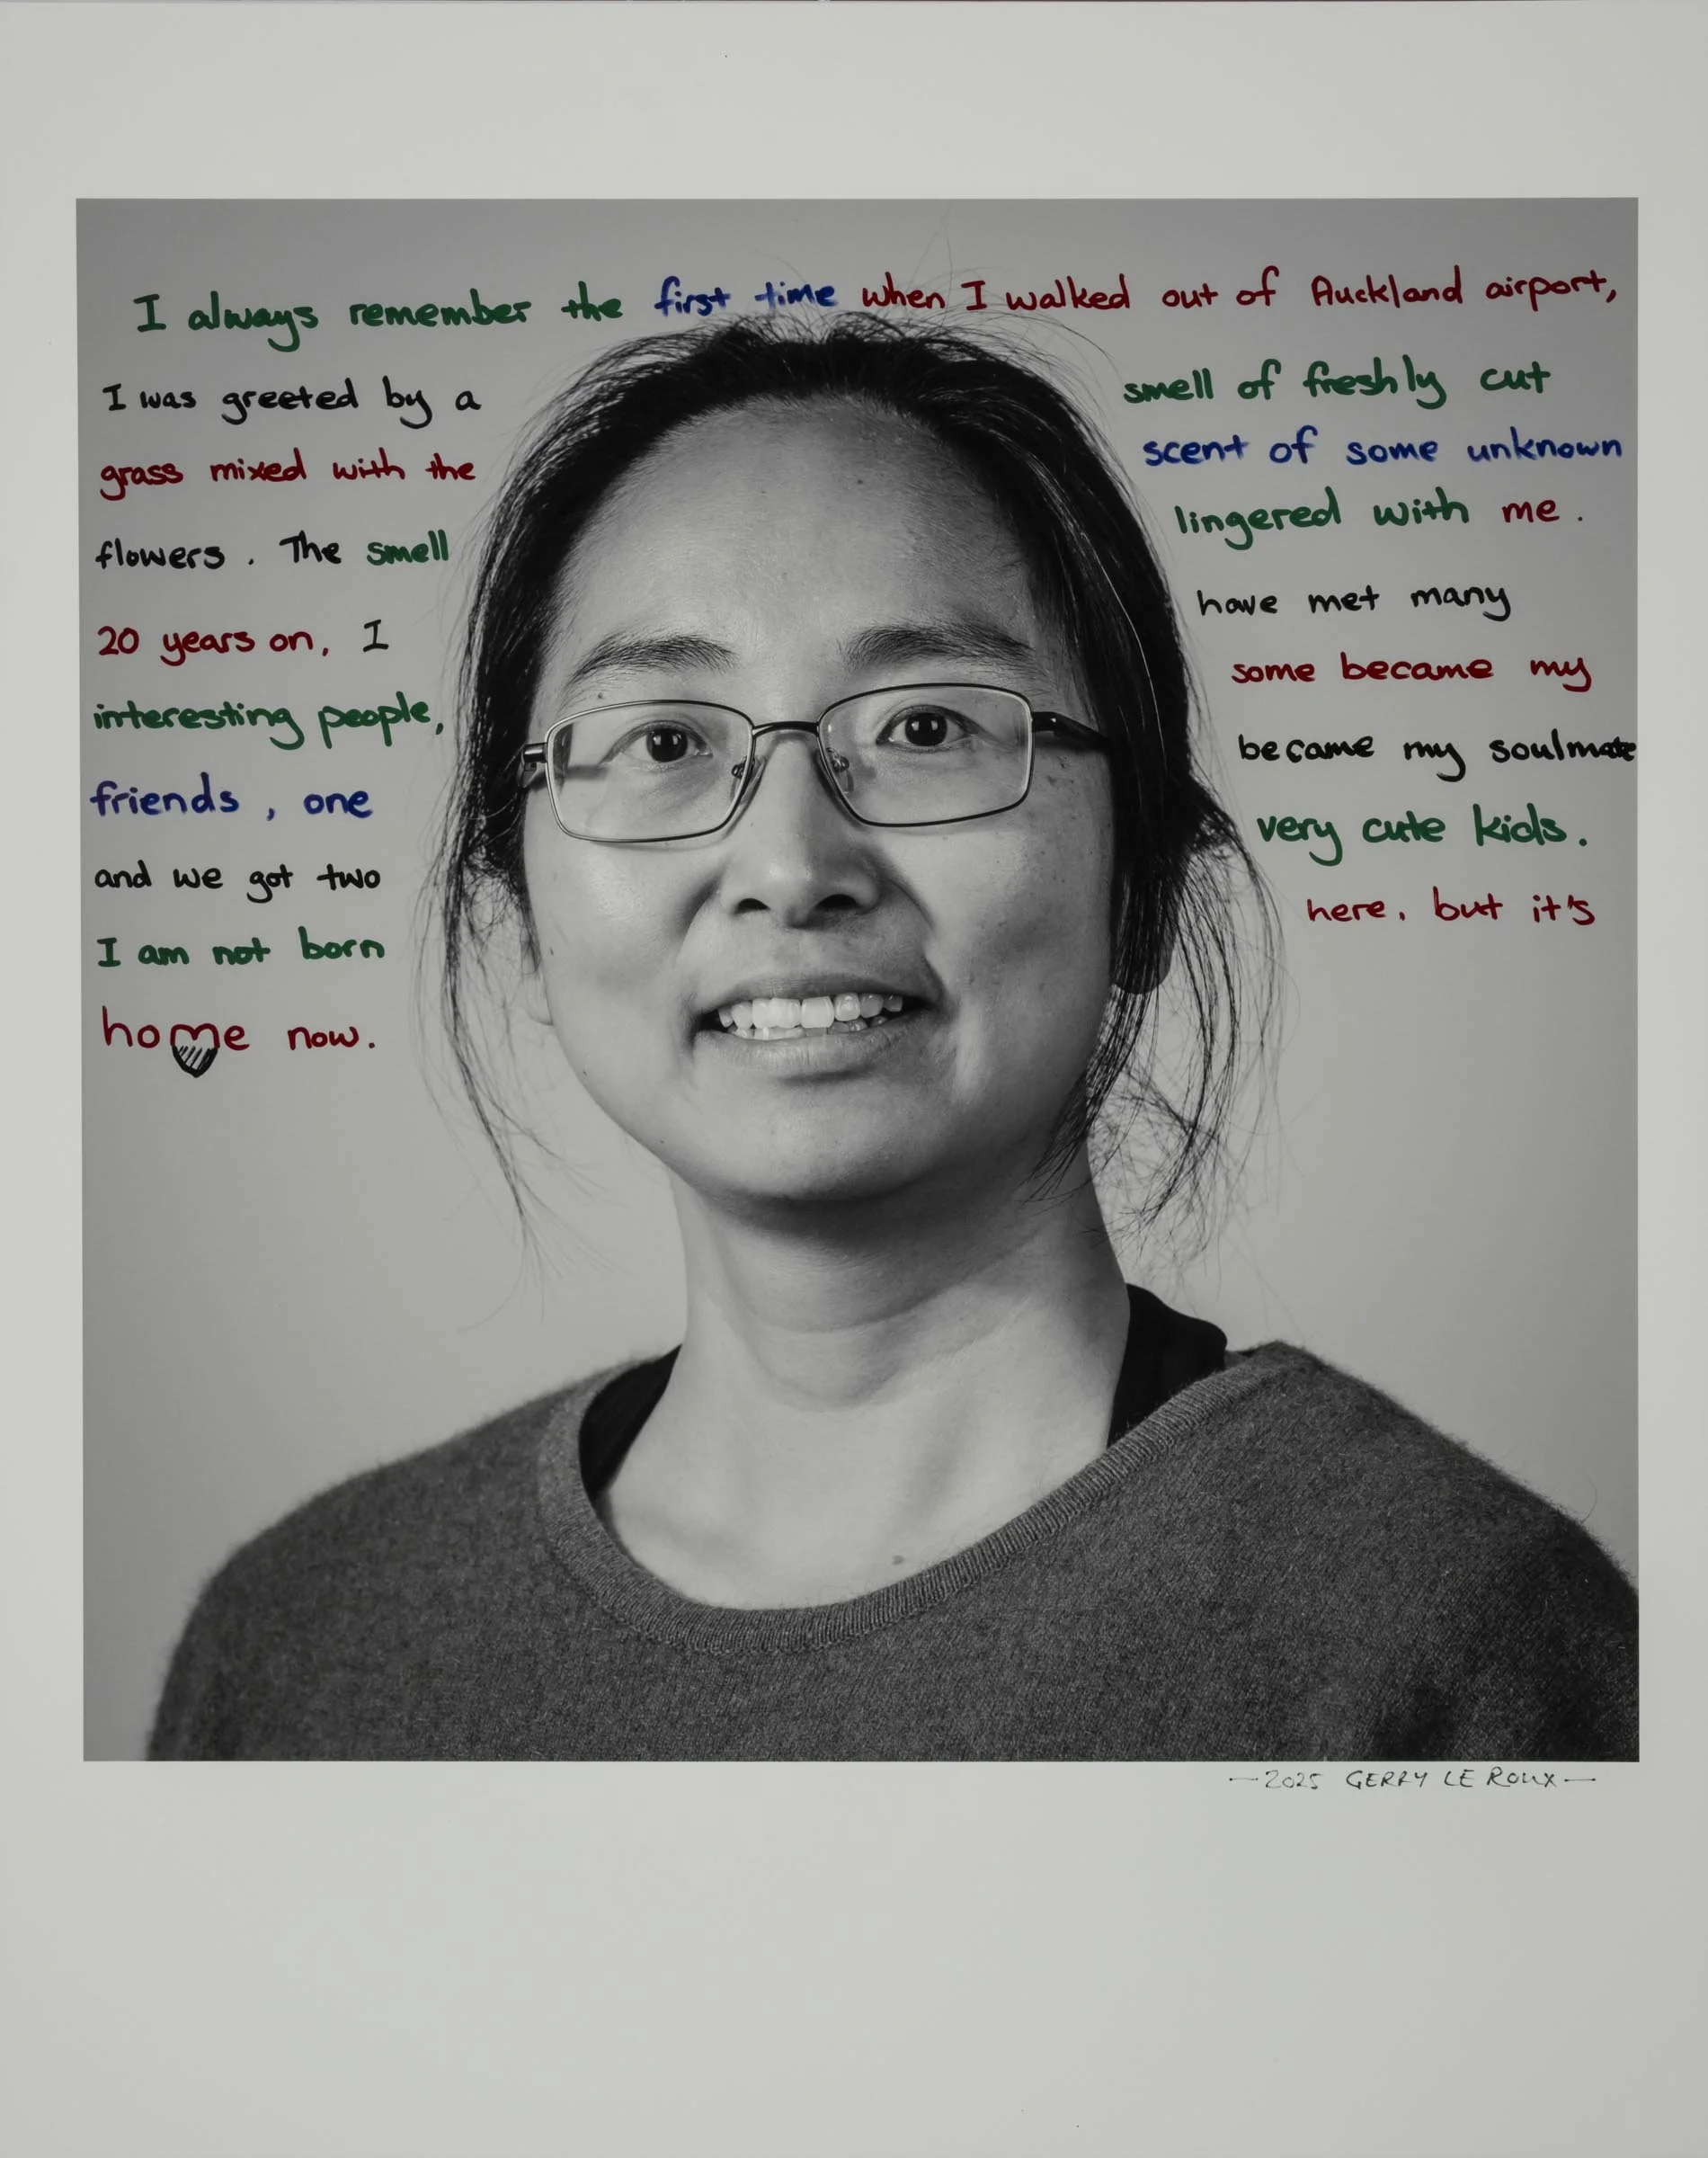 I always remember the first time when I walked out of Auckland airport,
I was greeted by a smell of freshly cut
grass mixed with the scent of some unknown
flowers. The smell lingered with me.
20 years on, I have met many
interesting people, some became my
friends, one became my soulmate
and we got two very cute kids.
I am not born here, but it's
home now.
—2025 GERRY LE ROUX—